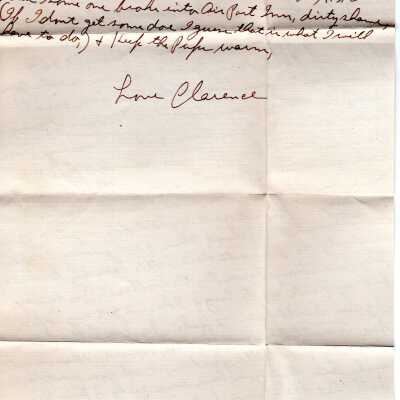 some one broke into Air Port Inn, dirty shame
(If I dont get some doe I guess that is what I will
have to do,) & Keep the Pipe warm,
Love Clarence